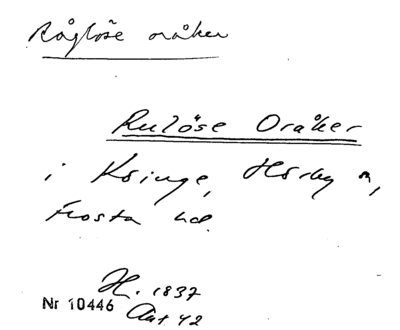 Råglöse oråker
Rulöse Oråker
i Ksinge, Hörby sn,
Frosta hd.
H. 1837
Nr 10446
Akt 42